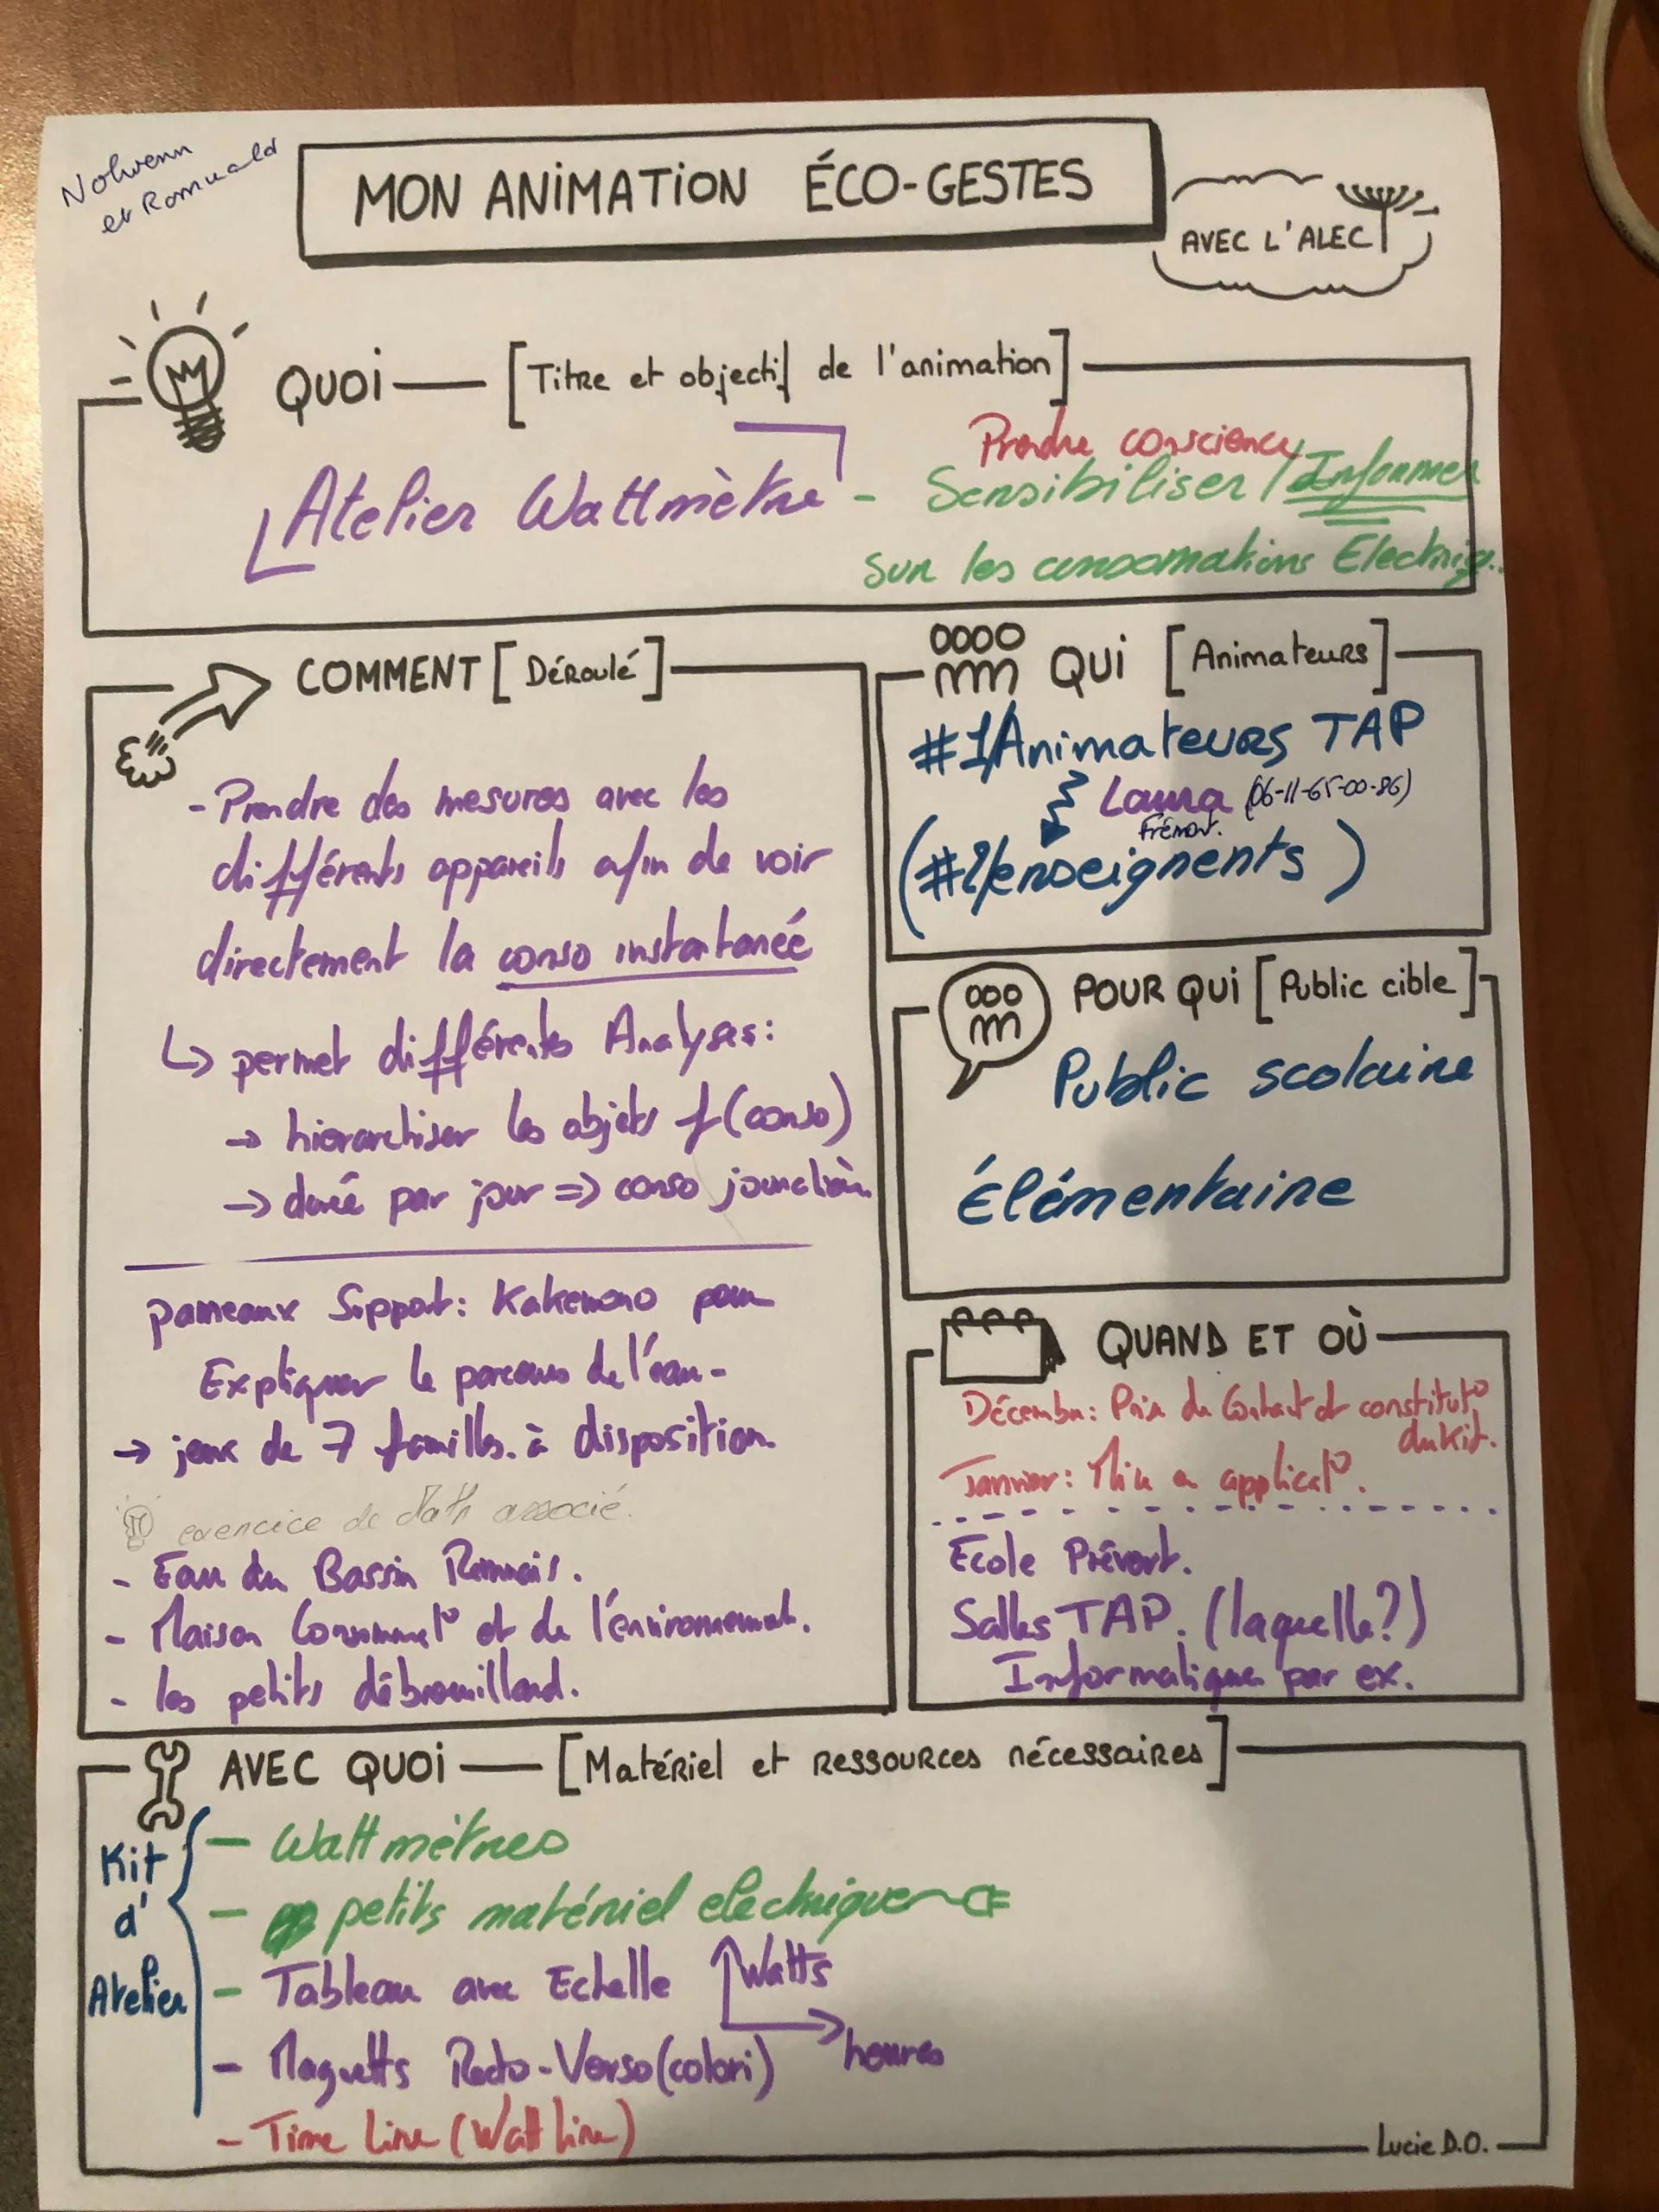 Nolwenn
et Romuald
MON ANIMATION ÉCO-GESTES
AVEC L'ALEC
QUOI — [Titre et objectif de l'animation]
Prendre conscience
Atelier Wattmètre - Sensibiliser / Informer
sur les consommations Electriq.
COMMENT [Déroulé]
- Prendre des mesures avec les
différents appareils afin de voir
directement la conso instantanée
↳ permet différentes Analyses:
→ hierarchiser les objets f(conso)
→ durée par jour => conso journalièr.
panneaux Support: Kakemono pour
Expliquer le parcours de l'eau-
→ jeux de 7 familles. à disposition.
exercice de Math associé.
- Eau du Bassin Rennais.
- Maison Consommat° et de l'environnement.
- les petits débrouillard.
QUI [Animateurs]
#1/Animateurs TAP
Laura (06-11-65-00-86)
Frémont.
(#2/enseignents)
POUR QUI [Public cible]
Public scolaire
Élémentaire
QUAND ET OÙ
Décembre: Prise de Contact et constitut°
du kit.
Janvier: Mise en applicat°.
Ecole Prévert.
Salles TAP. (laquelle?)
Informatique par ex.
AVEC QUOI — [Matériel et ressources nécessaires]
Kit
d'
Atelier
- Wattmètres
- petits matériel electrique
- Tableau avec Echelle Watts
heures
- Maquetts Recto-Verso (colori)
- Time Line (Watt Line)
Lucie D.O.